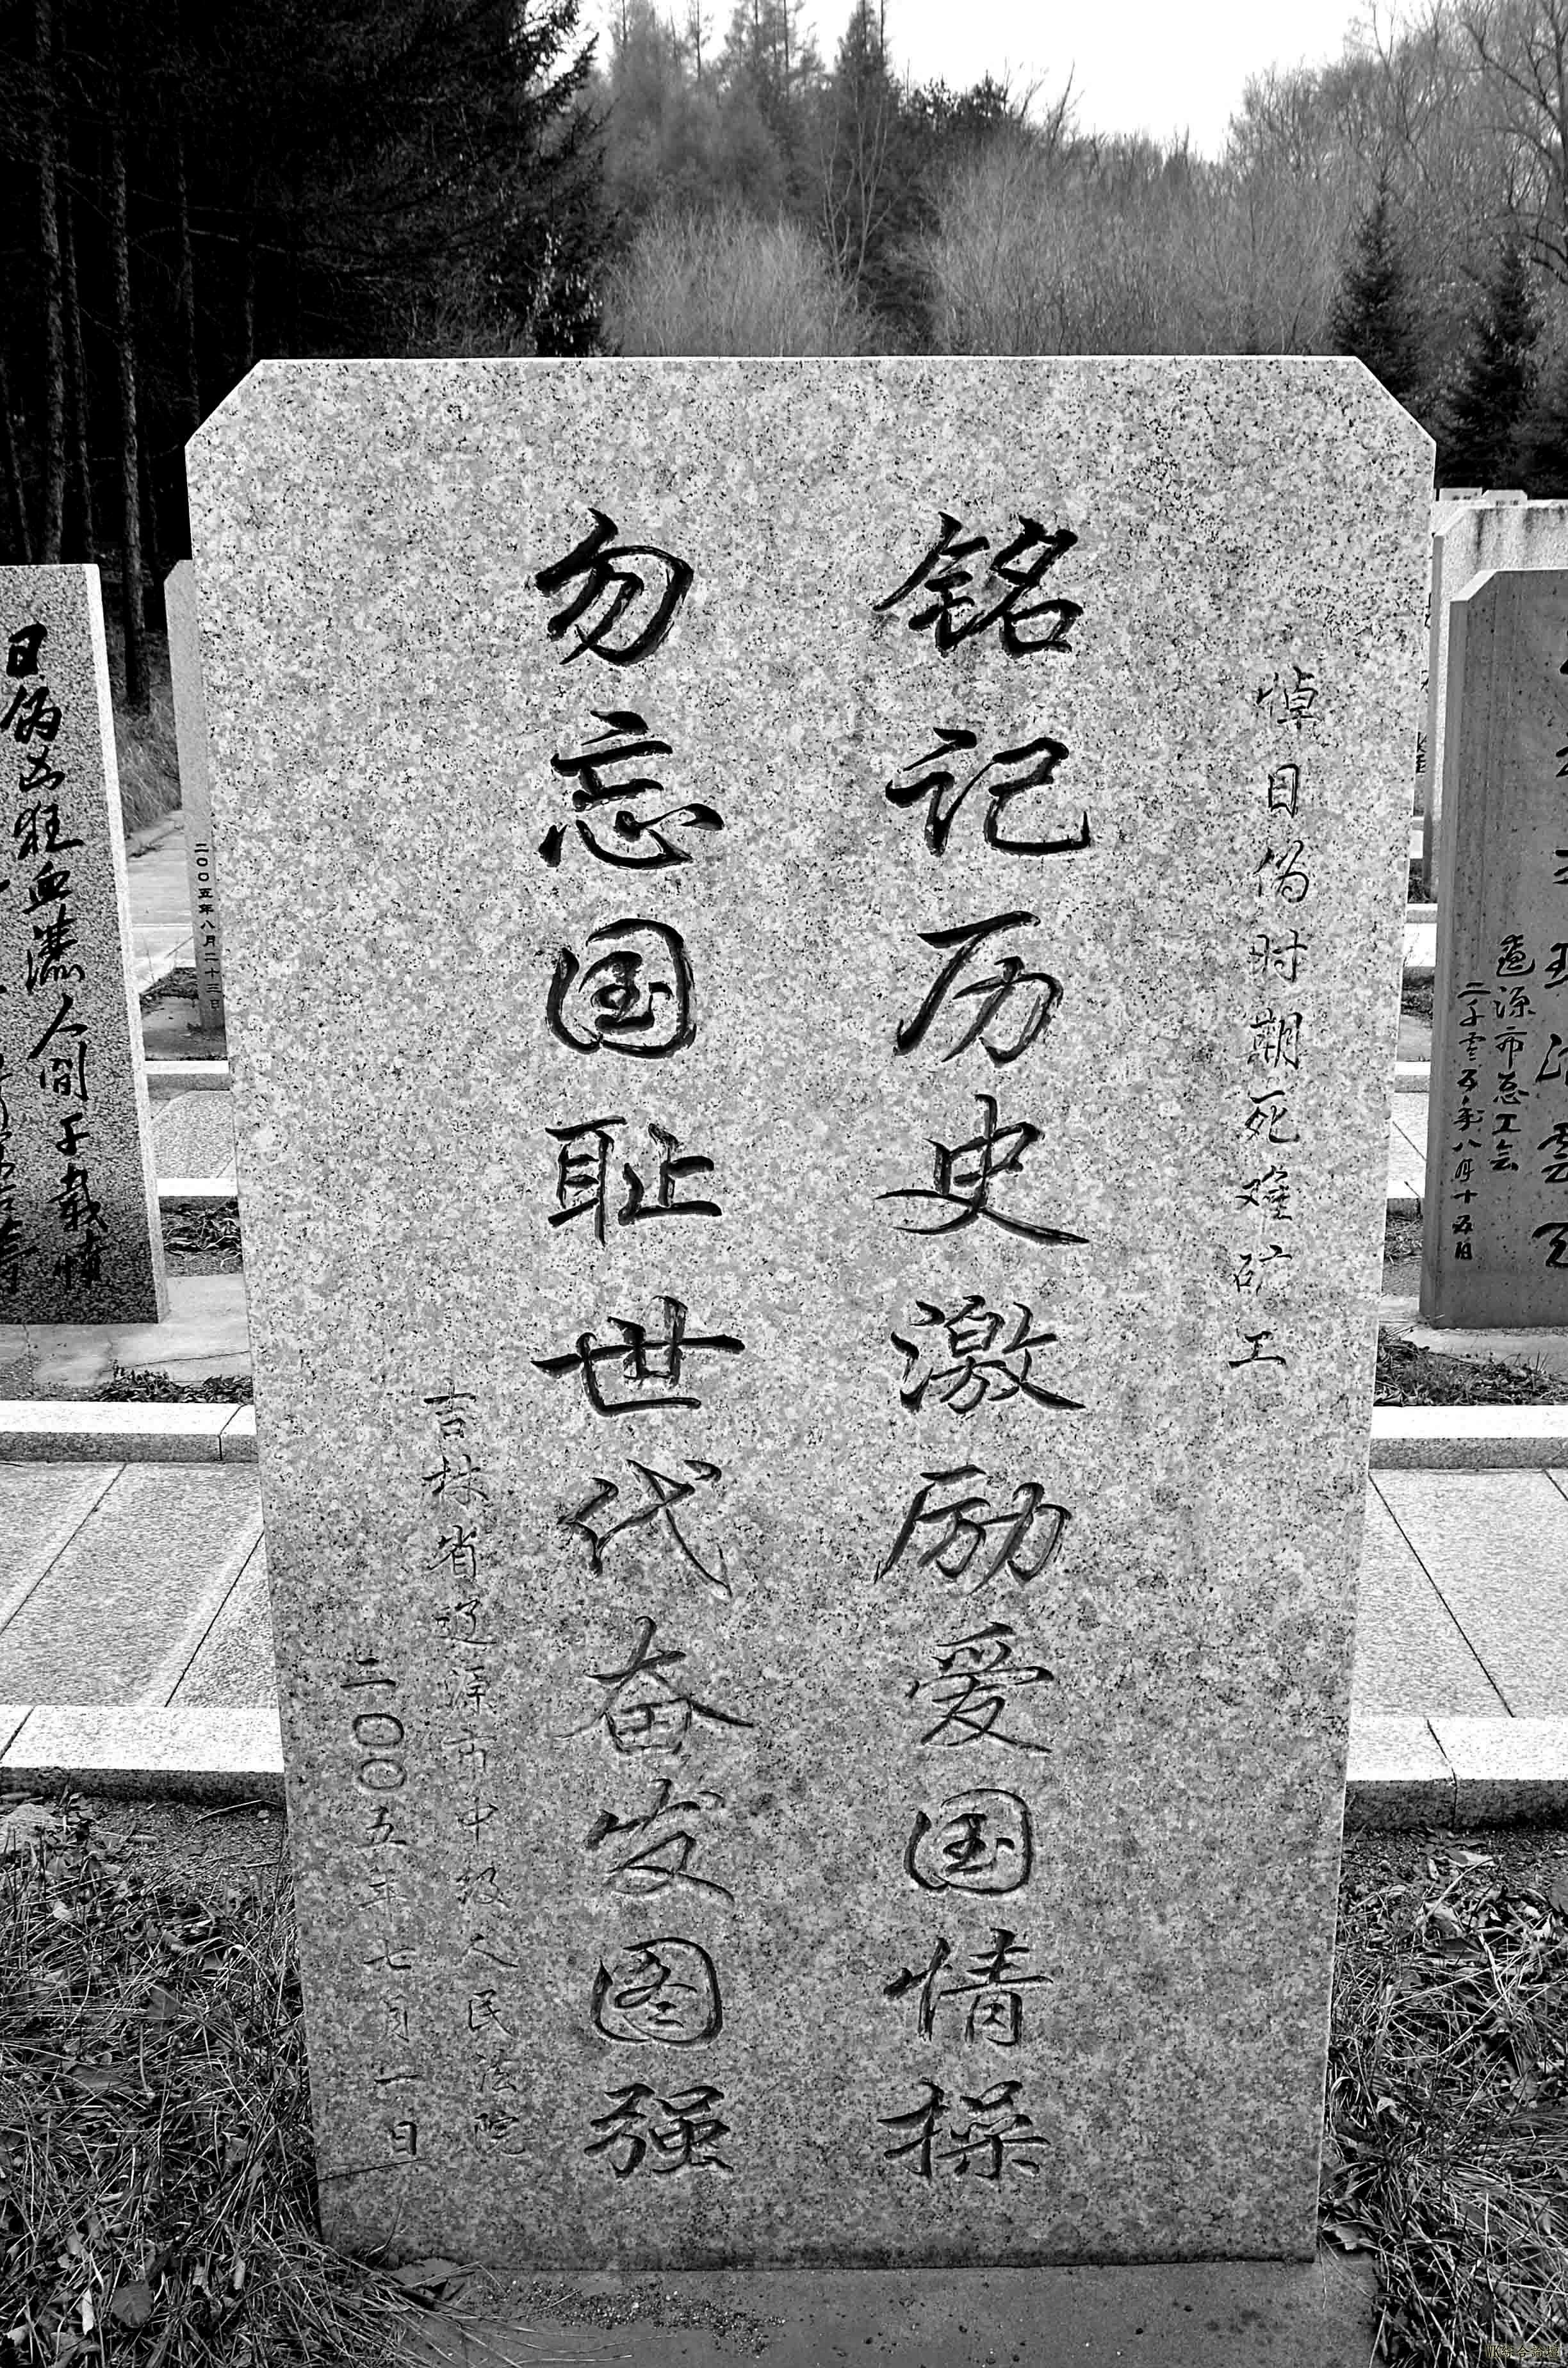 悼日伪时期死难矿工
铭记历史激励爱国情操
勿忘国耻世代奋发图强
吉林省辽源市中级人民法院
二〇〇五年七月一日
遼源市总工会
二千零五年八月十五日
二〇〇五年八月二十三日
日伪凶狂血漾人间千载愤